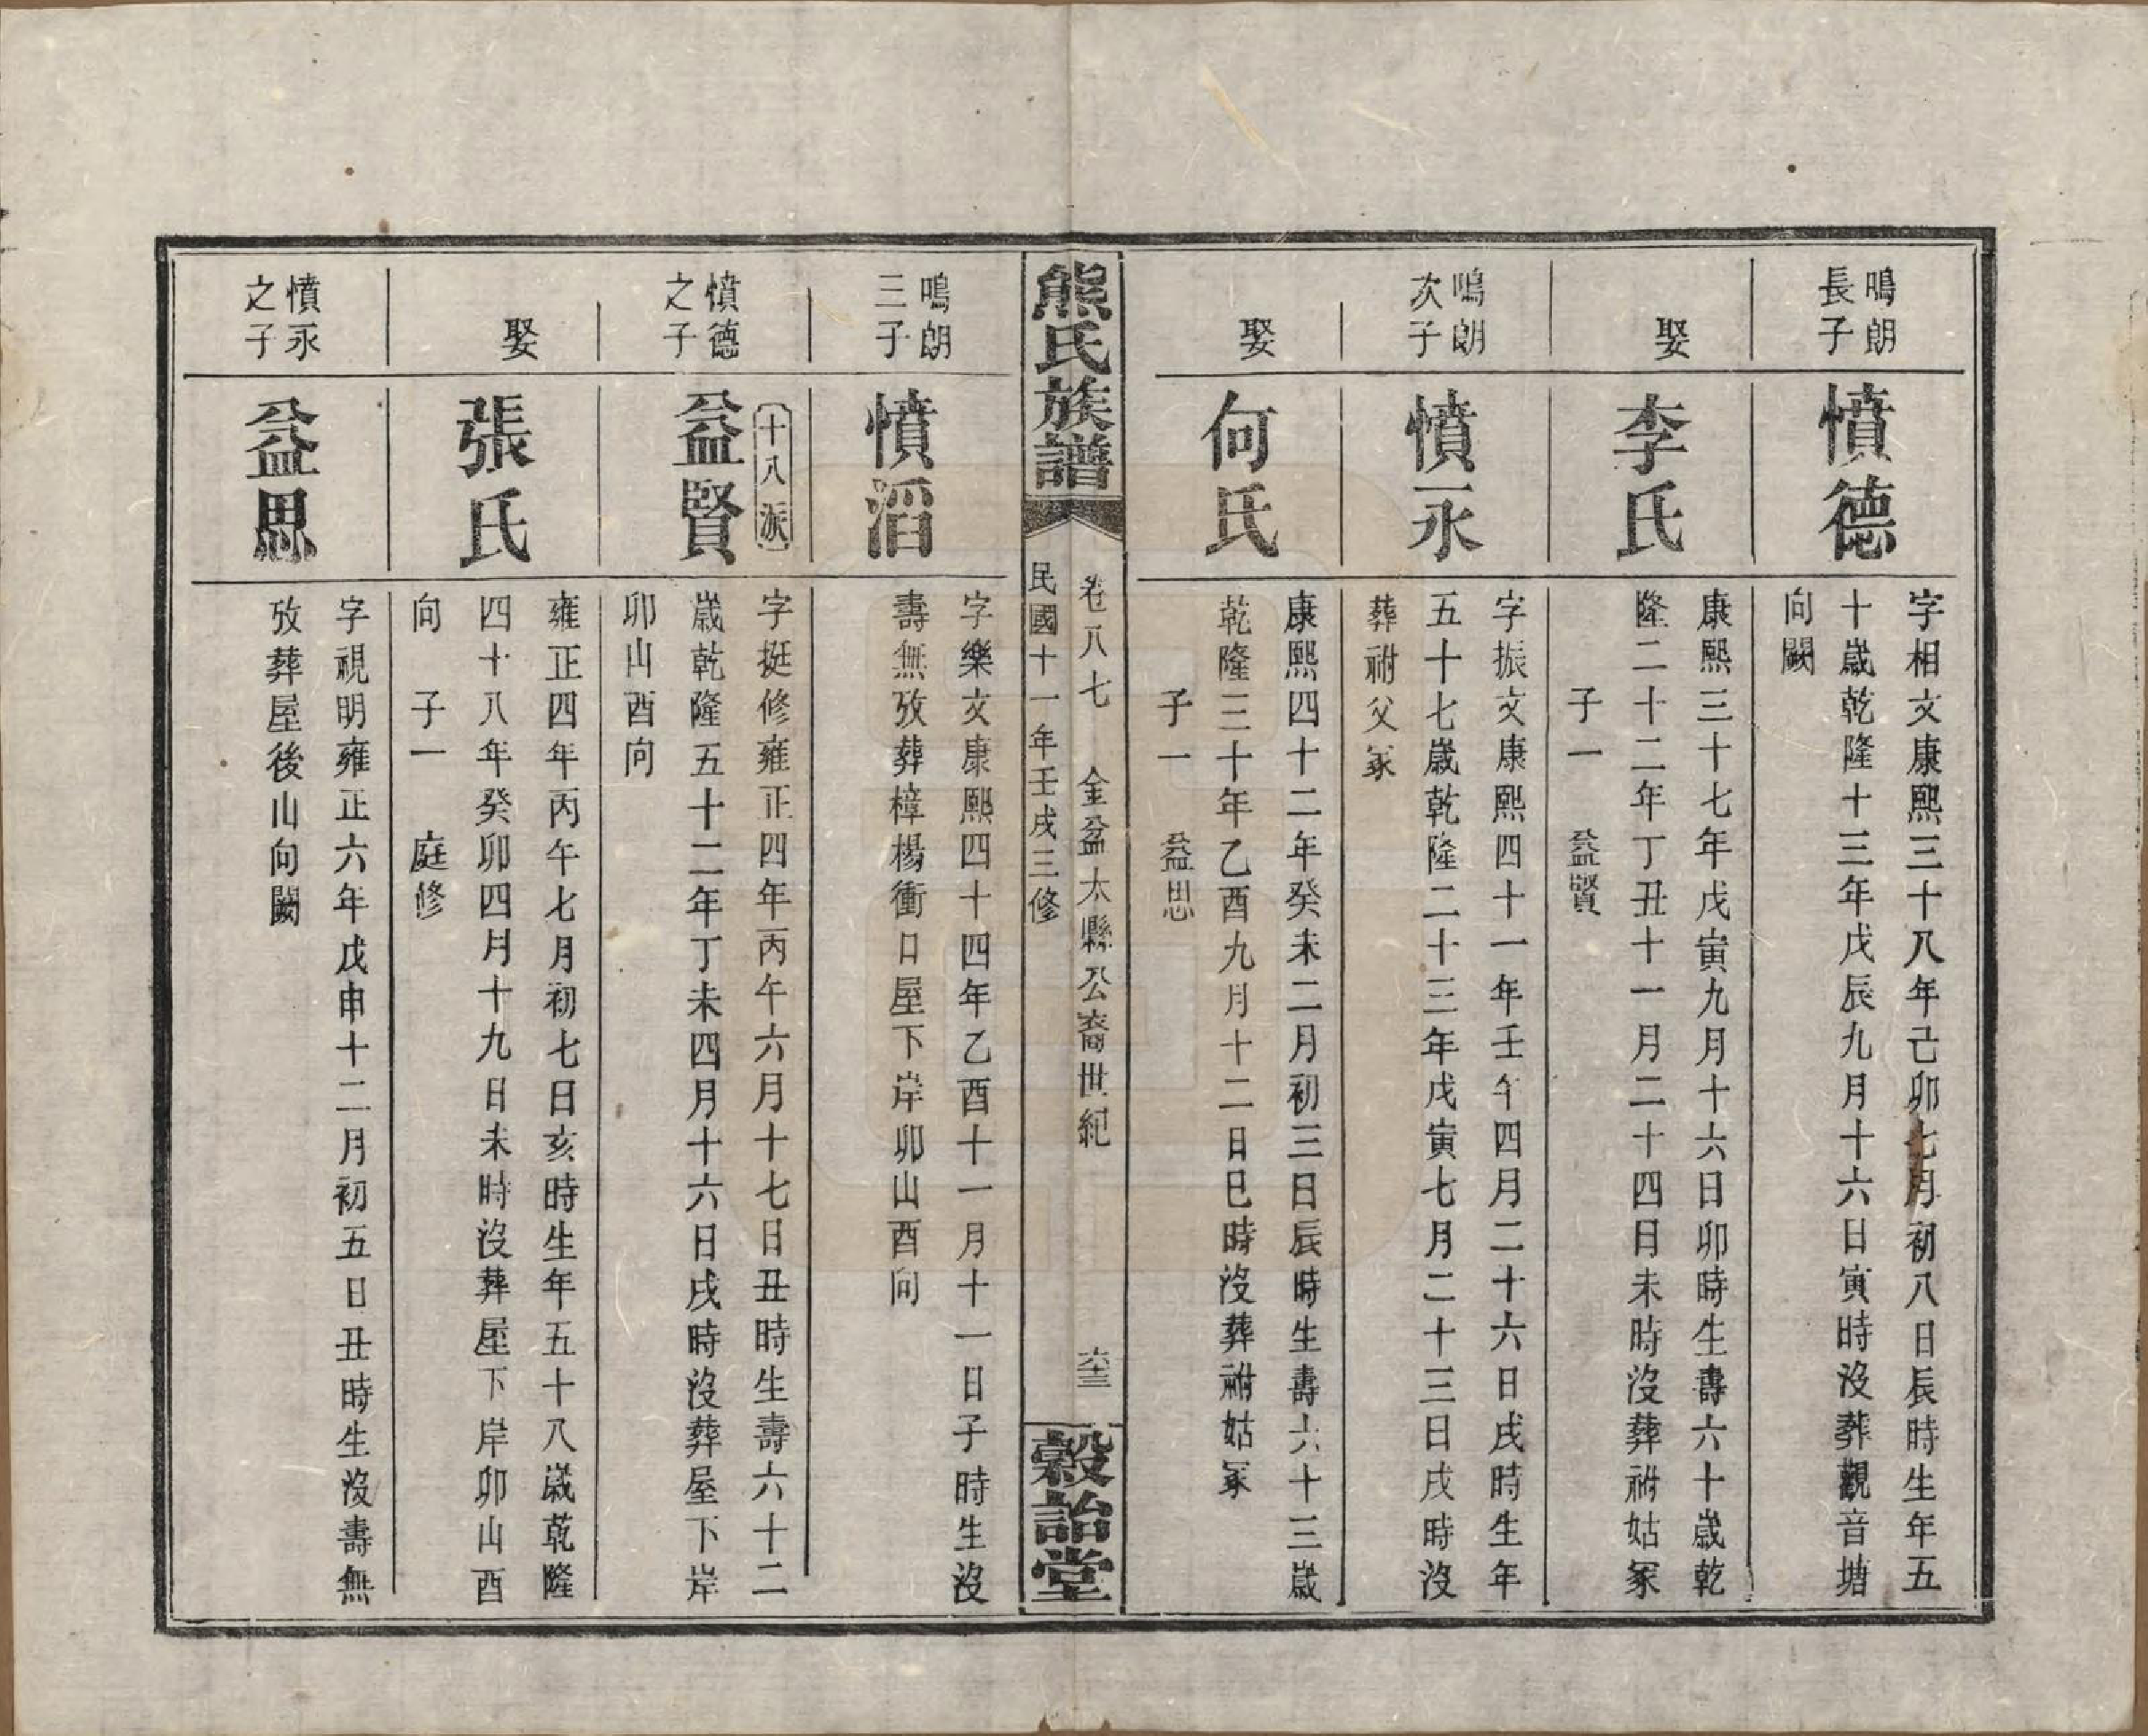 鳴朗
長子
憤德
字相文康熙三十八年己卯七月初八日辰時生年五
十歲乾隆十三年戊辰九月十六日寅時沒葬觀音塘
向闕
娶
李氏
康熙三十七年戊寅九月十六日卯時生壽六十歲乾
隆二十二年丁丑十一月二十四日未時沒葬祔姑冢
子一　益賢
鳴朗
次子
憤永
字振文康熙四十一年壬午四月二十六日戌時生年
五十七歲乾隆二十三年戊寅七月二十三日戌時沒
葬祔父冢
娶
何氏
康熙四十二年癸未二月初三日辰時生壽六十三歲
乾隆三十年乙酉九月十二日巳時沒葬祔姑冢
子一　益思
熊氏族譜
卷八七　金盆太縣公裔世紀　六十三
民國十一年壬戌三修
穀詒堂
鳴朗
三子
憤滔
字樂文康熙四十四年乙酉十一月十一日子時生沒
壽無攷葬樟楊衝口屋下岸卯山酉向
憤德
之子
十八派
益賢
字挺修雍正四年丙午六月十七日丑時生壽六十二
歲乾隆五十二年丁未四月十六日戌時沒葬屋下岸
卯山酉向
娶
張氏
雍正四年丙午七月初七日亥時生年五十八歲乾隆
四十八年癸卯四月十九日未時沒葬屋下岸卯山酉
向　子一　庭修
憤永
之子
益思
字視明雍正六年戊申十二月初五日丑時生沒壽無
攷葬屋後山向闕